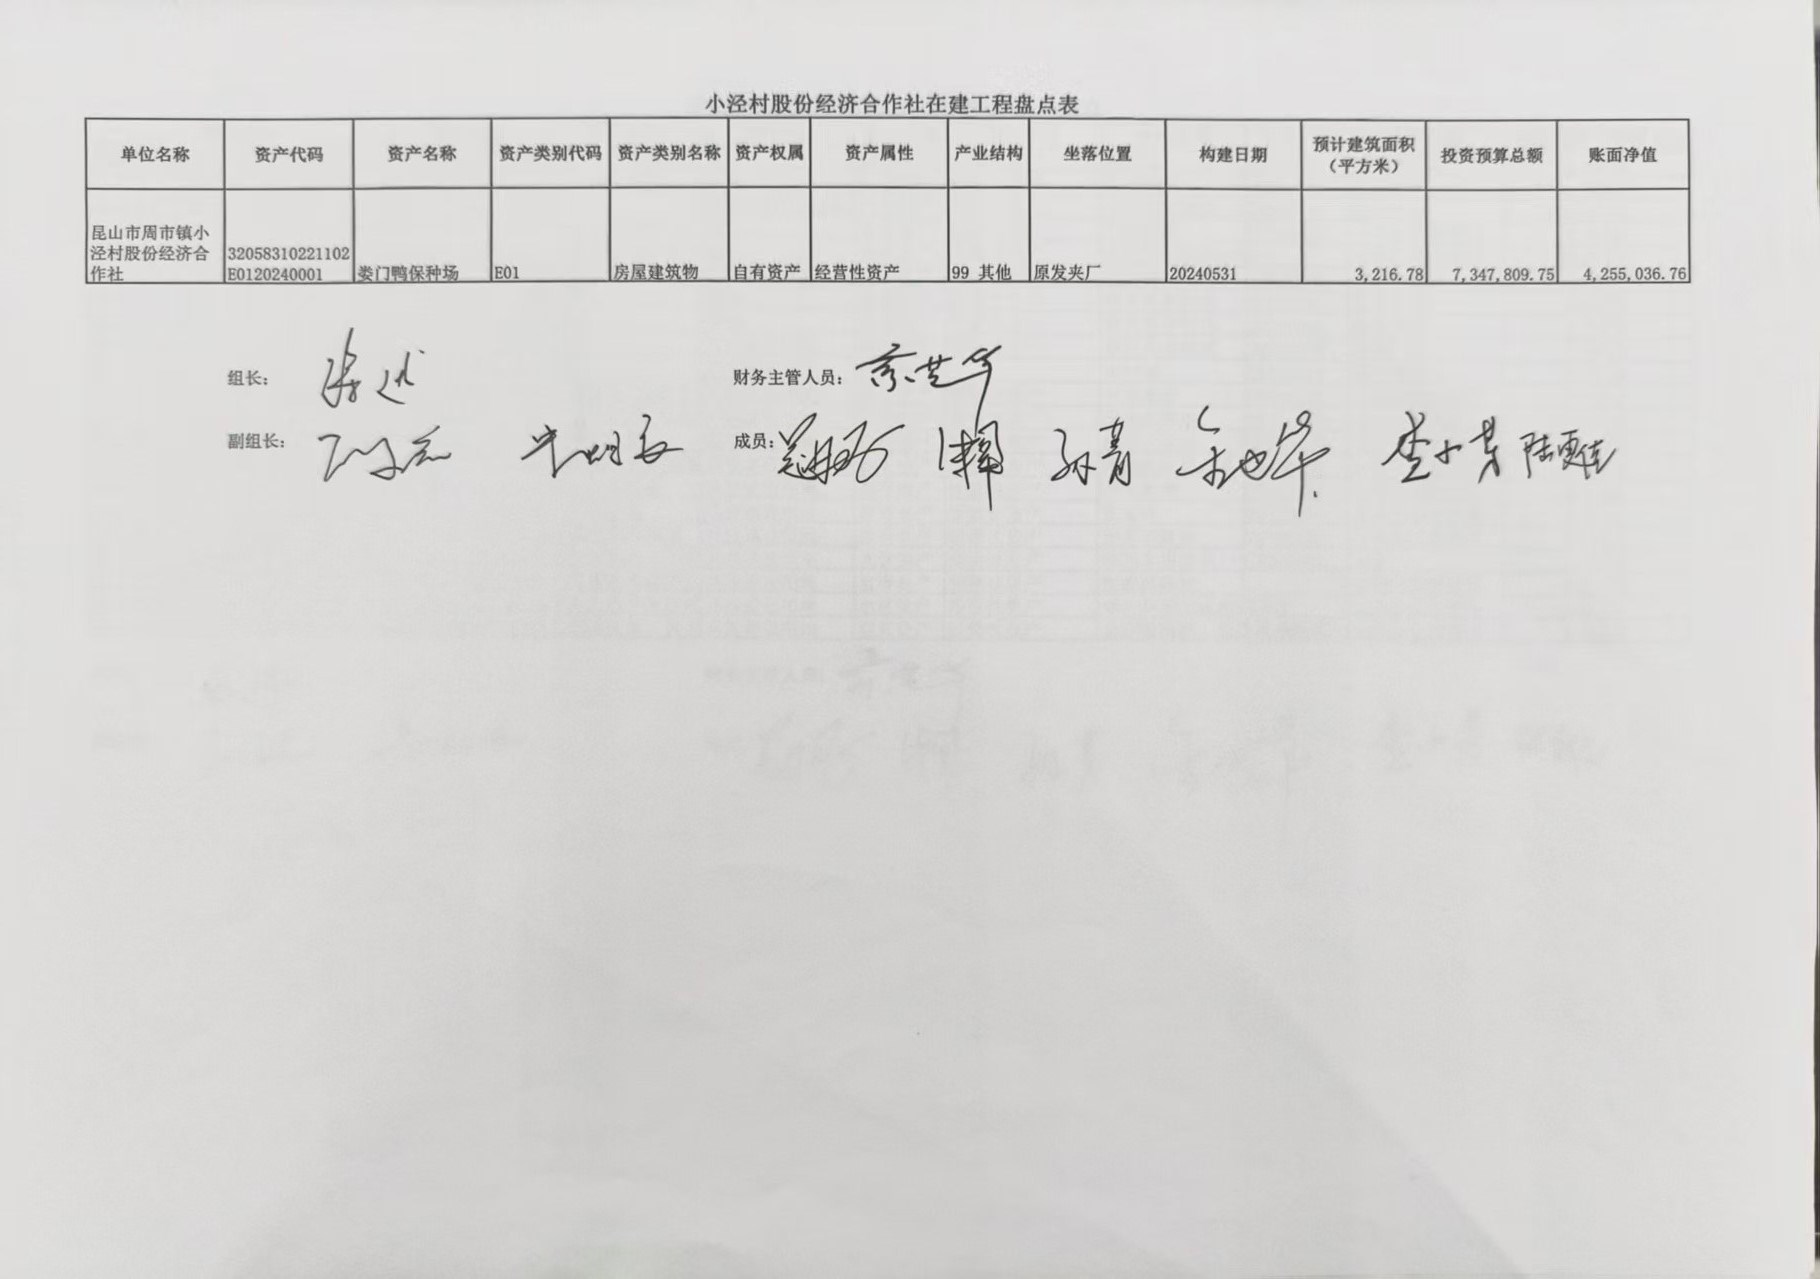 小泾村股份经济合作社在建工程盘点表
单位名称 资产代码 资产名称 资产类别代码 资产类别名称 资产权属 资产属性 产业结构 坐落位置 构建日期 预计建筑面积（平方米） 投资预算总额 账面净值
昆山市周市镇小泾村股份经济合作社 32058310221102E0120240001 娄门鸭保种场 E01 房屋建筑物 自有资产 经营性资产 99 其他 原发夹厂 20240531 3,216.78 7,347,809.75 4,255,036.76
组长： 财务主管人员：
副组长： 成员： 孙青